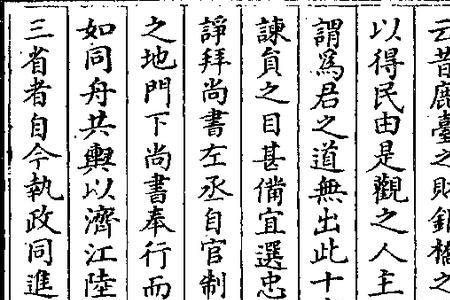 云昔鹿臺之財鉅橋之
以得民由是觀之人主
謂爲君之道無出此十
諫貟之目甚備宜選忠
諍拜尚書左丞自官制
之地門下尚書奉行而
如同舟共輿以濟江陸
三省者自今執政同進